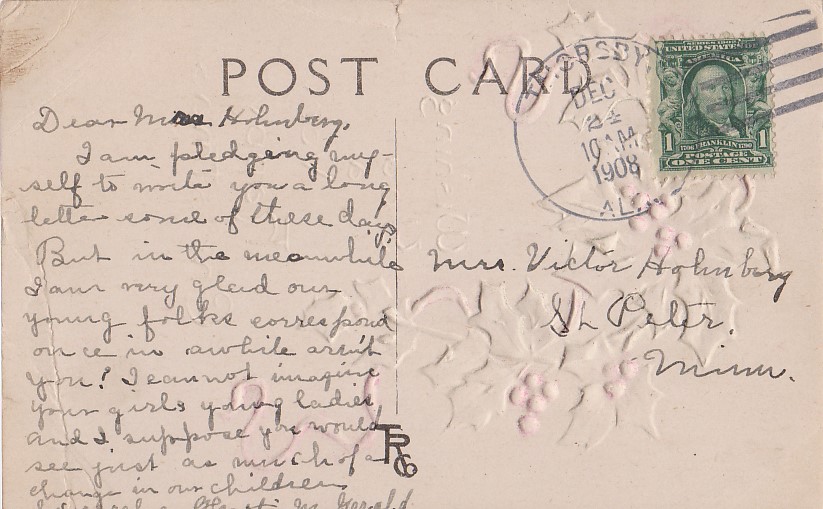 POST CARD
THORSBY
DEC
24
10 AM
1908
ALA.
SERIES 1902
UNITED STATES OF
AMERICA
1 FRANKLIN 1
1706 1790
POSTAGE
ONE CENT
Dear Mrs. Holmberg,
I am pledging my-
self to write you a long
letter some of these days.
But in the meanwhile
I am very glad our
young folks correspond
once in awhile aren't
you? I cannot imagine
your girls young ladies
and I suppose you would
see just as much of a
change in our children
Mrs. Victor Holmberg
St. Peter.
Minn.
TRCo